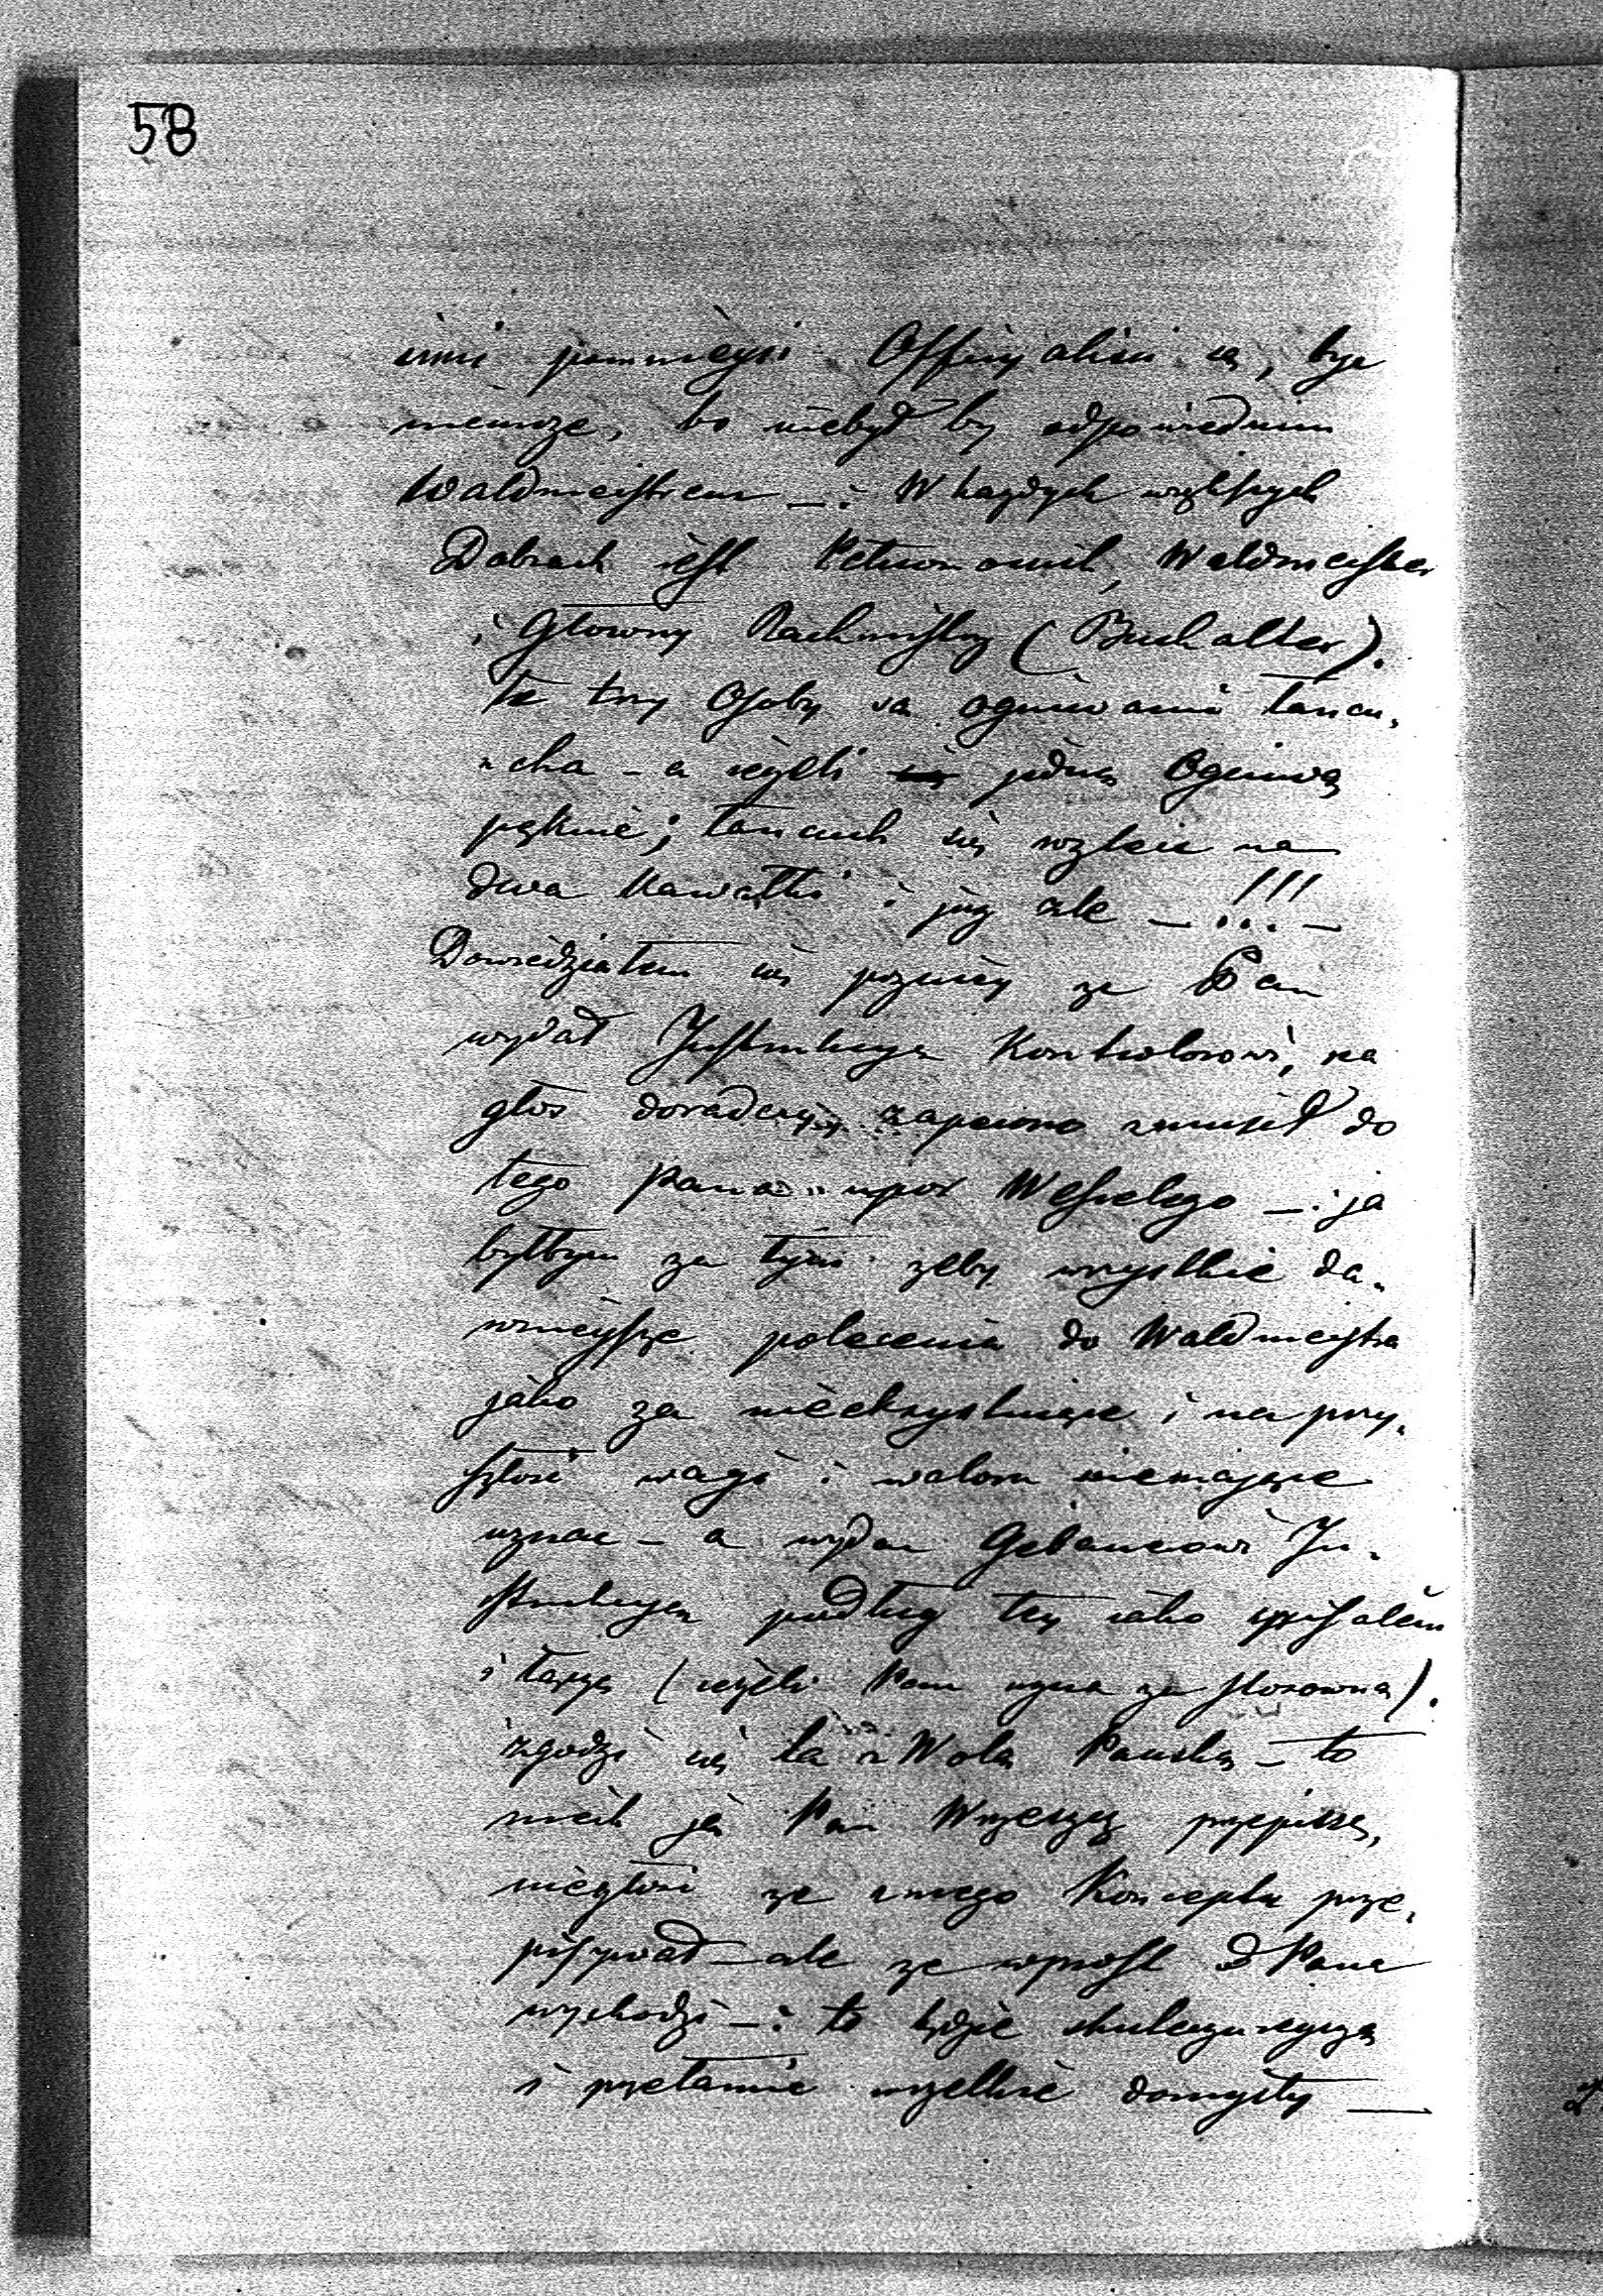 58
inni pomnieysi Officyalisci są, byc
niemoze, bo niebył by odpowiednim
Waldmeistrem —: W kazdych większych
Dobrach iest Pełnomocnik, Waldmeister
i Głowny Rachmistrz (Buchalter).
te trzy Osoby są ogniwami łancu„
„cha – a ieżeli jedną Ogniwą
pęknie; łancuch się rozleci na
dwa kawałki i juz zle — !!! —
Dowiedziałem się pozniey ze Pan
wydał Instrukcyą Kontrolorowi, na
głos doradczy zapewno zmusił do
tego Pana upor Wesołego —: ja
byłbym za tym zeby wszystkie da„
wnieysze polecenia do Waldmeistra
jako za nieekzystuiące i na przy„
szłosć wagi i waloru niemające
uznac – a wydac Gebauerowi In„
strukcyą podług tey iako spisałem
i łączę (ieżeli Pan uzna za stosowną).
zgodzi się ta z Wolą Panską – to
niech ją Pan przepisze,
niezłosi ze z mego Konceptu prze„
pisywał – ale ze wprost od Pana
wychodzi —: to będzie skutecznieyszą
i przełamie wszelkie domysły —